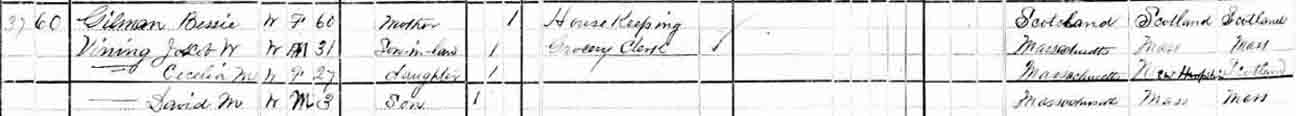 37 60 Gilman Bessie W F 60 Mother 1 House Keeping Scotland Scotland Scotland
Vining W W M 31 Son-in-law 1 Grocery Clerk Massachusetts Mass Mass
— Cecelia M W F 27 daughter 1 Massachusetts New Hampshire Scotland
— David M W M 3 Son 1 Massachusetts Mass Mass